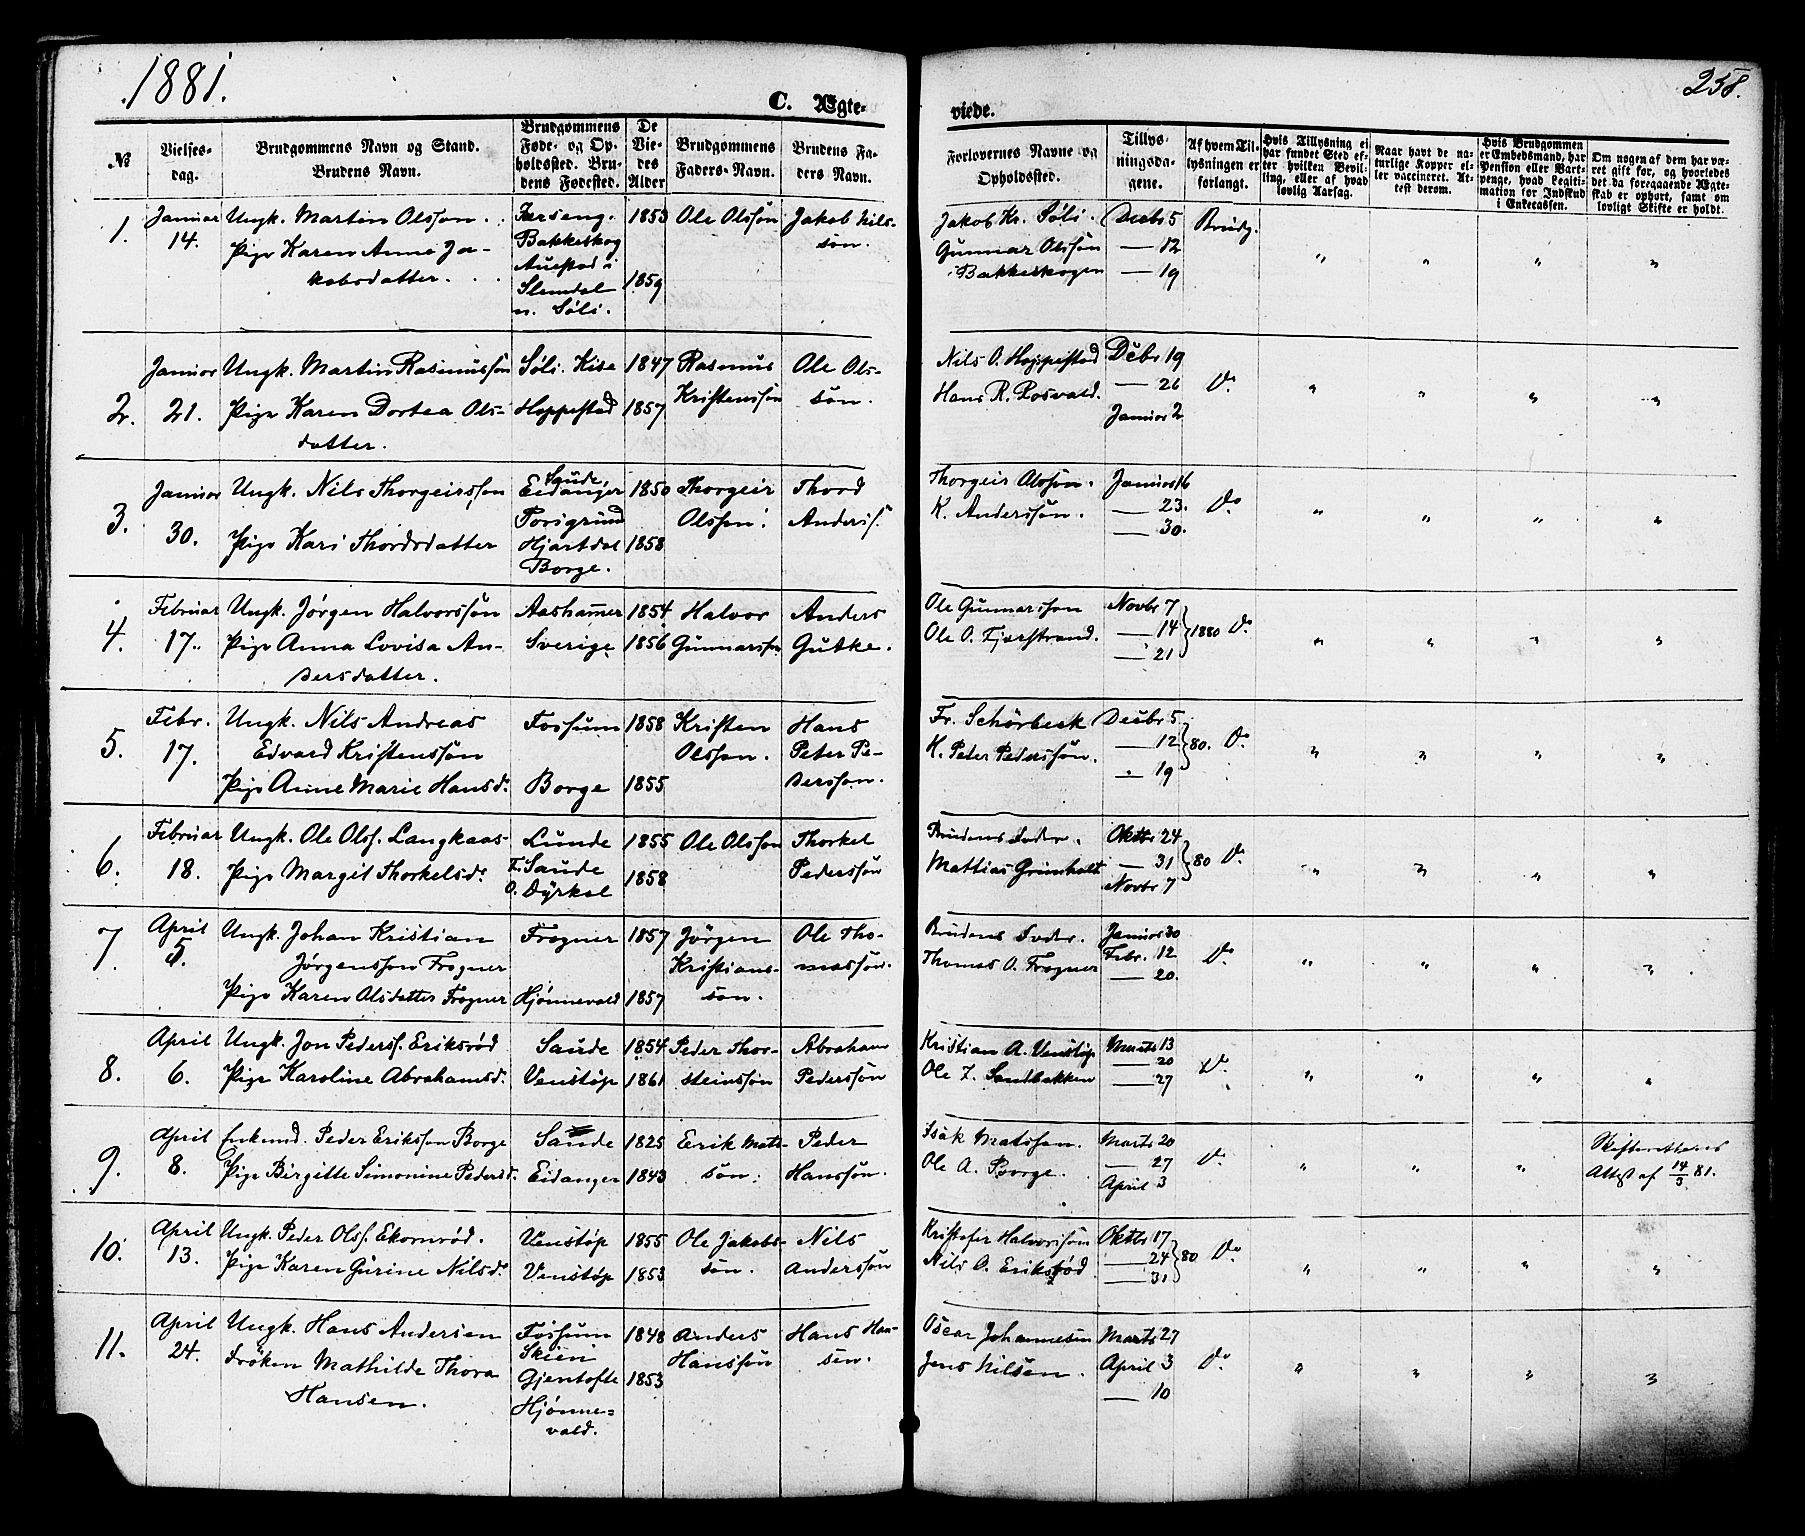 1881.
258.
C. Ægte-
viede.
No
Vielses-
dag.
Brudgommens Navn og Stand.
Brudens Navn.
Brudgommens
Føde- og Op-
holdssted. Bru-
dens Fødested.
De
Vie-
des
Alder
Brudgommens
Faders-Navn.
Brudens Fa-
ders Navn.
Forlovernes Navne og
Opholdssted.
Tillys-
ningsda-
gene.
Af hvem Til-
lysningen er
forlangt.
Hvis Tillysning ei
har fundet Sted ef-
ter hvilken Bevil-
ling, eller af hvad
lovlig Aarsag.
Naar havt de na-
turlige Kopper el-
ler vaccineret. At-
test derom.
Hvis Brudgommen
er Embedsmand, har
Pension eller Vart-
penge, hvad Legiti-
mation for Indskud
i Enkecassen.
Om nogen af dem har væ-
ret gift for, og hvorledes
det da foregaaende Ægte-
skab er ophørt, samt om
lovligt Skifte er holdt.
1.
Januar
14.
Ungk. Martin Olsson.
Pige Karen Anne Ja-
kobsdatter.
Bakkeskog
Slemdal
n. Søli.
1853
1859
Ole Olssøn
Jakob Nils-
søn.
Jakob Kr. Søli.
Gunnar Olssøn
i Bakkeskogen
Decbr 5
— 12
— 19
Brudg.
" " " "
2.
Januar
21.
Ungk. Martin Rasmussøn
Pige Karen Dortea Ols-
datter.
Søli. Kise
Hoppestad
1847
1857
Rasmus
Kristenssøn
Ole Ols-
søn.
Nils O. Hoppestad
Hans R. Rosvald.
Decbr 19
— 26
Januar 2
Do
" " " "
3.
Januar
30.
Ungk. Nils Thorgeirsson
Pige Kari Thordsdatter
Saude,
Eidanger
Porsgrund
Hjartdal
Borge.
1850
1858
Thorgeir
Olsson.
Thord
Anders f.
Thorgeir Olssøn.
K. Anderssøn.
Januar 16
— 23.
— 30.
Do
" " " "
4.
Februar
17.
Ungk. Jørgen Halvorssøn
Pige Anna Lovisa An-
dersdatter.
Aashamer
Sverige
1854
1856
Halvor
Gunnarssøn
Anders
Gutke.
Ole Gunnarsson
Ole O. Fjærstrand.
Novbr 7
— 14
— 21
1880
Do
" " " "
5.
Febr.
17.
Ungk. Nils Andreas
Edvard Kristenssøn
Pige Anne Marie Hansd.
Fossum
Borge
1858
1855
Kristen
Olsson.
Hans
Peter Pe-
dersson.
Fr. Schörbeck
H. Peter Pederssøn.
Decbr 5
— 12
" 19
80.
Do
" " " "
6.
Februar
18.
Ungk. Ole Olsf. Langkaas
Pige Margit Thorkelsd.
Lunde
F. Saude
O. Dyrkol
1855
1858
Ole Olsson
Thorkel
Pederssøn
Brudens Fader.
Mattias Grimholt
Oktbr 24
— 31
Novbr 7
80
Do
" " " "
7.
April
5.
Ungk. Johan Kristian
Jørgensson Frogner
Pige Karen Olsdatter Frogner
Frogner
Hjønnevald
1857
1857
Jørgen
Kristians-
son.
Ole Tho-
massøn.
Brudens Fader.
Thomas O. Frogner
Januar 30
Febr. 12
— 20.
Do
" " " "
8.
April
6.
Ungk. Jon Pedersf. Eriksrød
Pige Karoline Abrahamsd.
Saude
Venstøp
1854
1861
Peder Thor-
steinssøn
Abraham
Pederssøn
Kristian A. Venstøp
Ole Z. Sandbakken
Marts 13
— 20
— 27
Do
" " " "
9.
April
8.
Enkemd. Peder Eriksson Borge
Pige Birgitte Simonine Pedersd.
Saude
Eidanger
1825
1843
Erik Mats-
søn.
Peder
Hanssøn.
Isak Matssøn.
Ole A. Borge.
Marts 20
— 27
April 3
Do
" " "
Skifterettens
Attest af 14/3 81.
10.
April
13.
Ungk. Peder Olsf. Ekornrød.
Pige Karen Gurine Nilsd.
Venstøp
Venstøp
1855
1853
Ole Jakobs-
søn.
Nils
Anderssøn
Kristofer Halvorssøn
Nils A. Eriksrød
Oktbr 17
— 24
— 31
80
Do
" " " "
11.
April
24.
Ungk. Hans Andersen
Frøken Mathilde Thora
Hansen.
Fossum
Skien
Gjentofte
Hjønne-
vald.
1848
1853
Anders
Hanssøn
Hans Han-
sen.
Oscar Johannesen
Jens Nilsen.
Marts 27
April 3
— 10
Do
" " " "